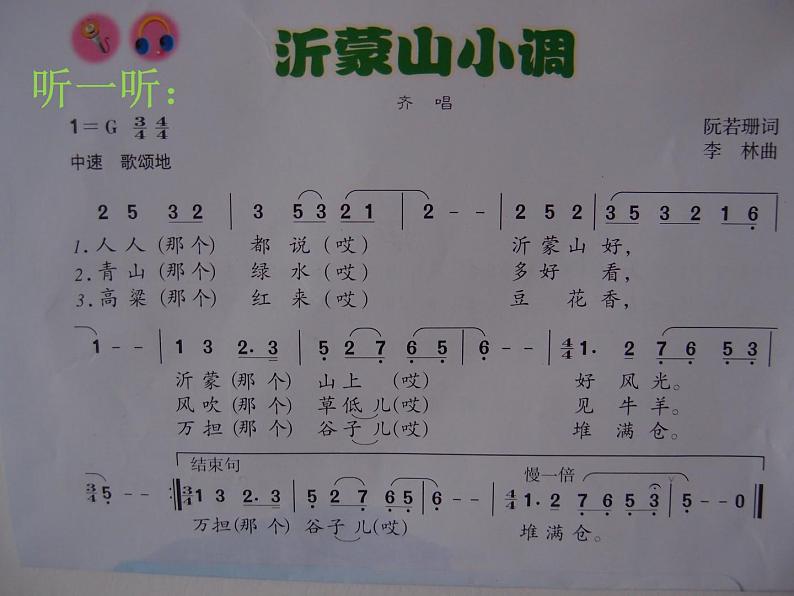 沂蒙山小调
听一听：
齐 唱
1=G 3/4 4/4
阮若珊词
中速 歌颂地
李 林曲
2 5 3 2 | 3 5 3 2 1 | 2 - - | 2 5 2 | 3 5 3 2 1 6 |
1.人人(那个) 都说(哎) 沂蒙山好，
2.青山(那个) 绿水(哎) 多好看，
3.高粱(那个) 红来(哎) 豆花香，
1 - - | 1 3 2.3 | 5 2 7 6 5 | 6 - - | 4/4 1. 2 7 6 5 3 |
沂蒙(那个) 山上 (哎) 好风光。
风吹(那个) 草低儿(哎) 见牛羊。
万担(那个) 谷子儿(哎) 堆满仓。
结束句
慢一倍
3/4 5 - - :‖ 3/4 1 3 2.3 | 5 2 7 6 5 | 6 - - | 4/4 1. 2 7 6 5 3 | 5 - - 0 ‖
万担(那个) 谷子儿(哎) 堆满仓。